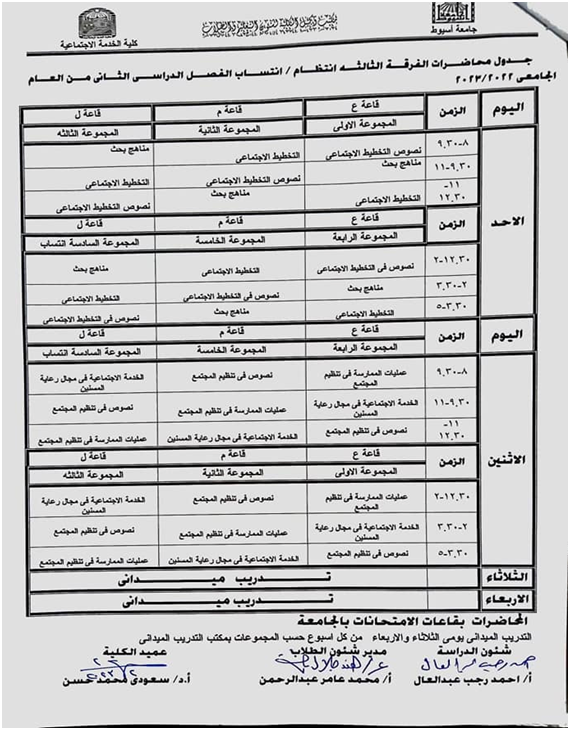 جامعة أسيوط
كلية الخدمة الاجتماعية
جدول محاضرات الفرقة الثالثه انتظام / انتساب الفصل الدراسى الثانى من العام
الجامعى ٢٠٢٣/٢٠٢٢
اليوم الزمن قاعة ع قاعة م قاعة ل
المجموعة الاولى المجموعة الثانية المجموعة الثالثه
الاحد
٨-٩.٣٠ نصوص التخطيط الاجتماعى التخطيط الاجتماعى مناهج بحث
٩.٣٠-١١ مناهج بحث نصوص التخطيط الاجتماعى التخطيط الاجتماعى
١١-١٢.٣٠ التخطيط الاجتماعى مناهج بحث نصوص التخطيط الاجتماعى
الزمن قاعة ع قاعة م قاعة ل
المجموعة الرابعة المجموعة الخامسة المجموعة السادسة انتساب
١٢.٣٠-٢ نصوص فى التخطيط الاجتماعى التخطيط الاجتماعى مناهج بحث
٢-٣.٣٠ مناهج بحث نصوص فى التخطيط الاجتماعى التخطيط الاجتماعى
٣.٣٠-٥ التخطيط الاجتماعى مناهج بحث نصوص فى التخطيط الاجتماعى
اليوم الزمن قاعة ع قاعة م قاعة ل
المجموعة الرابعة المجموعة الخامسة المجموعة السادسة انتساب
الاثنين
٨-٩.٣٠ عمليات الممارسة فى تنظيم المجتمع نصوص فى تنظيم المجتمع الخدمة الاجتماعية فى مجال رعاية المسنين
٩.٣٠-١١ الخدمة الاجتماعية فى مجال رعاية المسنين عمليات الممارسة فى تنظيم المجتمع نصوص فى تنظيم المجتمع
١١-١٢.٣٠ نصوص فى تنظيم المجتمع الخدمة الاجتماعية فى مجال رعاية المسنين عمليات الممارسة فى تنظيم المجتمع
الزمن قاعة ع قاعة م قاعة ل
المجموعة الاولى المجموعة الثانية المجموعة الثالثه
١٢.٣٠-٢ عمليات الممارسة فى تنظيم المجتمع نصوص فى تنظيم المجتمع الخدمة الاجتماعية فى مجال رعاية المسنين
٢-٣.٣٠ الخدمة الاجتماعية فى مجال رعاية المسنين عمليات الممارسة فى تنظيم المجتمع نصوص فى تنظيم المجتمع
٣.٣٠-٥ نصوص فى تنظيم المجتمع الخدمة الاجتماعية فى مجال رعاية المسنين عمليات الممارسة فى تنظيم المجتمع
الثلاثاء تدريب ميدانى
الاربعاء تدريب ميدانى
المحاضرات بقاعات الامتحانات بالجامعة
التدريب الميدانى يومى الثلاثاء والاربعاء من كل اسبوع حسب المجموعات بمكتب التدريب الميدانى
شئون الدراسة مدير شئون الطلاب عميد الكلية
أ/ احمد رجب عبدالعال أ/ محمد عامر عبدالرحمن أ.د/ سعودى محمد حسن